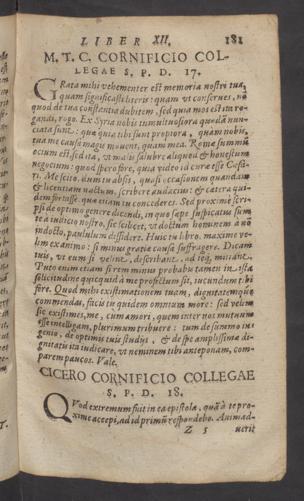 LIBER XII. 181
M. T. C. CORNIFICIO COL-
LEGAE S. P. D. 17.
GRata mihi vehementer est memoria nostri tua,
quam significasti literis: quam vt conserues, nõ
quod de tua constantia dubitem, sed quia mos est ita ro-
gandi, rogo. Ex Syria nobis tumultuosiora quædã nun-
ciata sunt: quæ quia tibi sunt propiora, quàm nobis,
tua me causa magis mouent, quàm mea. Romæ summũ
ocium est, sed ita, vt malis salubre aliquod & honestum
negocium: quod spero fore, quia video id curæ esse Cæsa-
ri. Me scito, dum tu absis, quasi occasionem quandam
& licentiam nactum, scribere audacius: & cætera qui-
dem fortasse, quæ etiam tu concederes. Sed proximè scri-
psi de optimo genere dicendi, in quo sæpe suspicatus sum
te à iudicio nostro, sic scilicet, vt doctum hominem à nõ
indocto, paululum dissidere. Huic tu libro, maximè ve-
lim ex animo: si minus gratiæ causa suffragere. Dicam
tuis, vt eum si velint, describant, ad teq́; mittant.
Puto enim etiam si rem minus probabis tamen in ista
solitudine quicquid à me profectum sit, iucundum tibi
fore. Quod mihi existimationem tuam, dignitatemque
commendas, facis tu quidem omnium more: sed velim
sic existimes, me, cum amori, quem inter nos mutuum
esse intelligam, plurimum tribuere: tum de summo in-
genio, & optimis tuis studiis, & de spe amplissimæ di-
gnitatis ita iudicare, vt neminem tibi anteponam, com-
parem paucos. Vale.
CICERO CORNIFICIO COLLEGAE
S. P. D. 18.
QVod extremum fuit in ea epistola, quã à te pro-
ximè accepi, ad id primũ respondebo. Animad-
Z 5 uertit